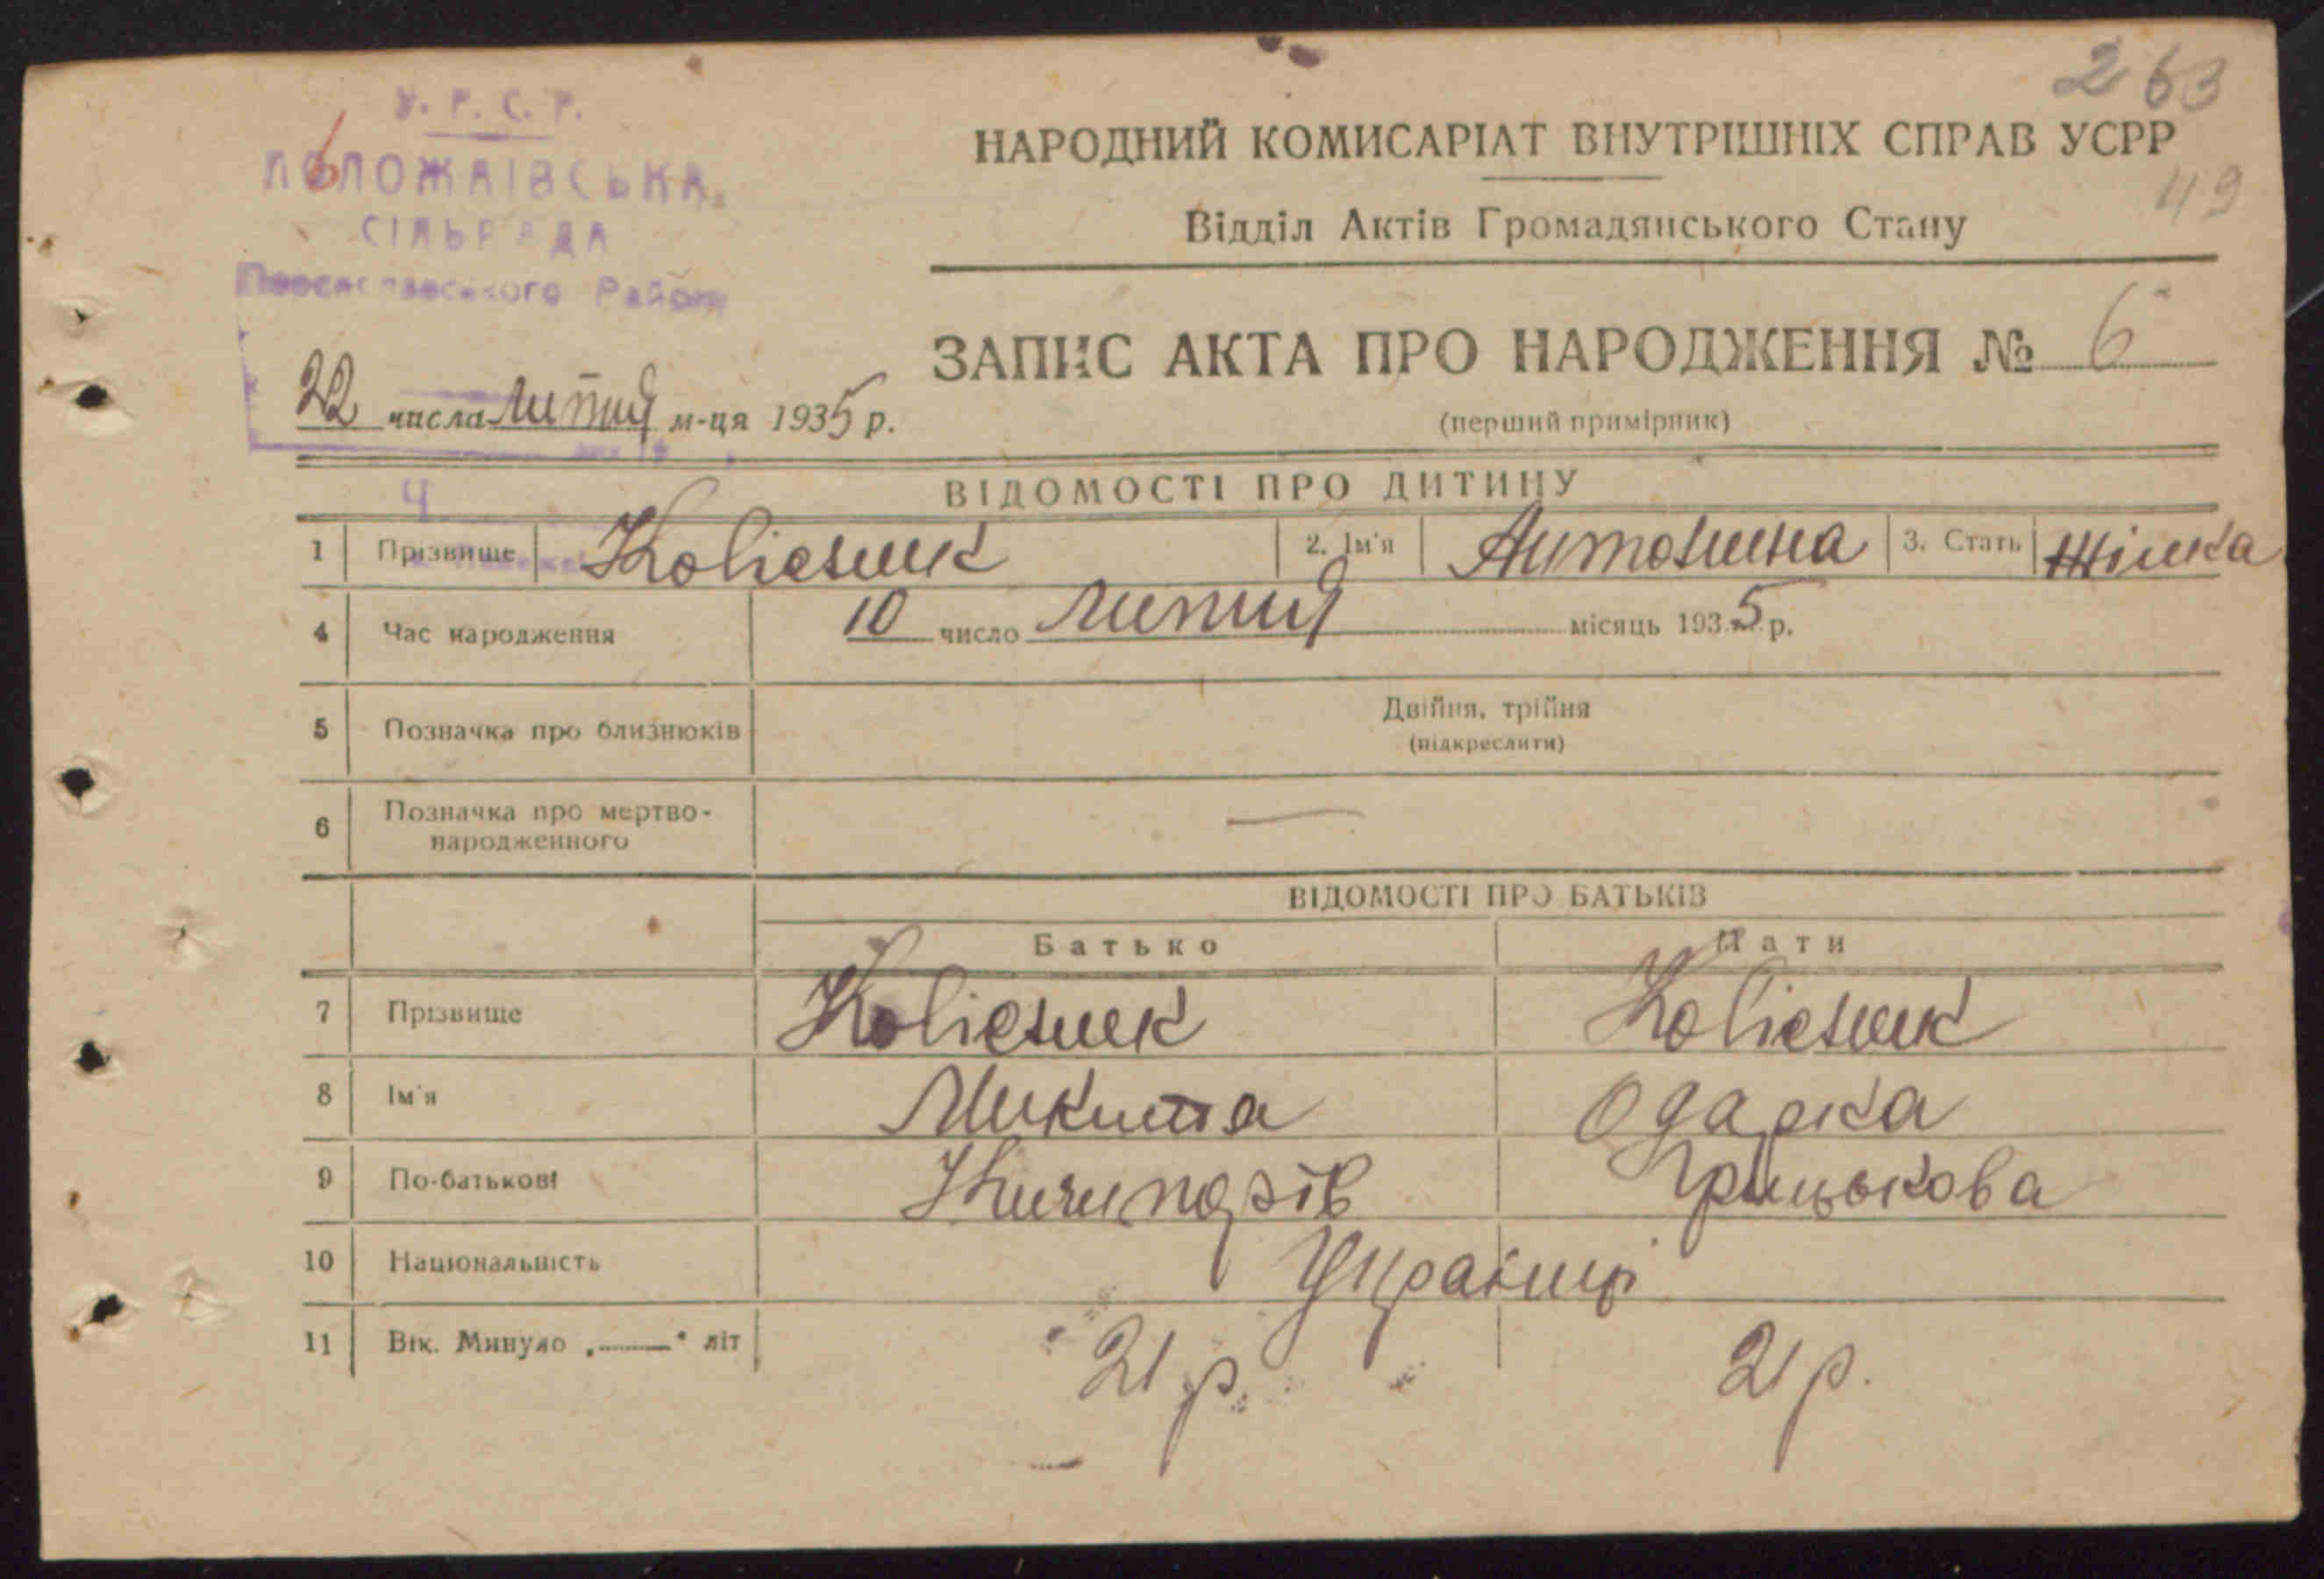 263
У. Р. С. Р.
ПОЛОЖАІВСЬКА
СІЛЬРАДА
Переяславського Району
НАРОДНИЙ КОМИСАРІАТ ВНУТРІШНІХ СПРАВ УСРР
49
Відділ Актів Громадянського Стану
ЗАПИС АКТА ПРО НАРОДЖЕННЯ № 6
22 числа Липня м-ця 1935 р.
(перший примірник)
ВІДОМОСТІ ПРО ДИТИНУ
1 Прізвище Колісник 2. Ім'я Антонина 3. Стать Жінка
4 Час народження 10 число Липня місяць 1935 р.
5 Позначка про близнюків Двійня, трійня
(підкреслити)
6 Позначка про мертво-
народженного —
ВІДОМОСТІ ПРО БАТЬКІВ
Батько Мати
7 Прізвище Колісник Колісник
8 Ім'я Микита Одарка
9 По-батькові Ничипорів Грицькова
10 Національність Українці
11 Вік. Минуло „——" літ 21 р. 21 р.